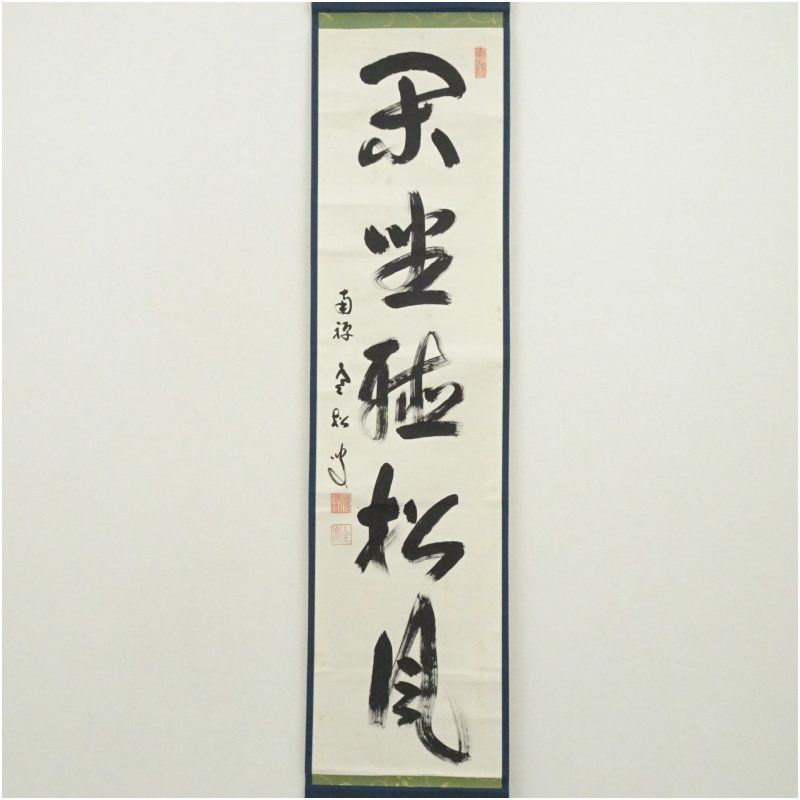 閑坐聴松風
南禅